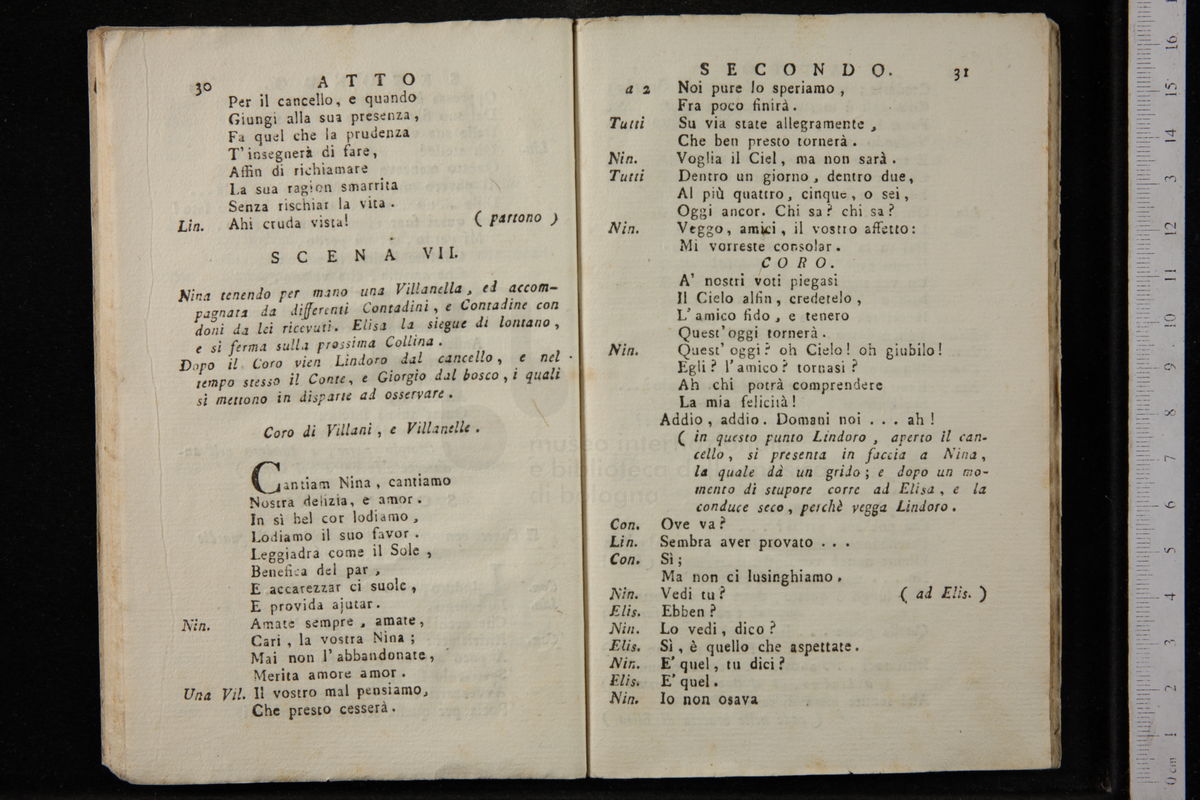 30
ATTO
Per il cancello, e quando
Giungi alla sua presenza,
Fa quel che la prudenza
T' insegnerà di fare,
Affin di richiamare
La sua ragion smarrita
Senza rischiar la vita.
Lin. Ahi cruda vista! ( partono )
SCENA VII.
Nina tenendo per mano una Villanella, ed accom-
pagnata da differenti Contadini, e Contadine con
doni da lei ricevuti. Elisa la siegue di lontano,
e si ferma sulla prossima Collina.
Dopo il Coro vien Lindoro dal cancello, e nel
tempo stesso il Conte, e Giorgio dal bosco, i quali
si mettono in disparte ad osservare.
Coro di Villani, e Villanelle.
Cantiam Nina, cantiamo
Nostra delizia, e amor.
In sì bel cor lodiamo,
Lodiamo il suo favor.
Leggiadra come il Sole,
Benefica del par,
E accarezzar ci suole,
E provida ajutar.
Nin. Amate sempre, amate,
Cari, la vostra Nina;
Mai non l' abbandonate,
Merita amore amor.
Una Vil. Il vostro mal pensiamo,
Che presto cesserà.
SECONDO.
31
a 2 Noi pure lo speriamo,
Fra poco finirà.
Tutti Su via state allegramente,
Che ben presto tornerà.
Nin. Voglia il Ciel, ma non sarà.
Tutti Dentro un giorno, dentro due,
Al più quattro, cinque, o sei,
Oggi ancor. Chi sa? chi sa?
Nin. Veggo, amici, il vostro affetto:
Mi vorreste consolar.
CORO.
A' nostri voti piegasi
Il Cielo alfin, credetelo,
L' amico fido, e tenero
Quest' oggi tornerà.
Nin. Quest' oggi? oh Cielo! oh giubilo!
Egli? l' amico? tornasi?
Ah chi potrà comprendere
La mia felicità!
Addio, addio. Domani noi . . . ah!
( in questo punto Lindoro, aperto il can-
cello, si presenta in faccia a Nina,
la quale dà un grido; e dopo un mo-
mento di stupore corre ad Elisa, e la
conduce seco, perchè vegga Lindoro.
Con. Ove va?
Lin. Sembra aver provato . . .
Con. Sì;
Ma non ci lusinghiamo.
Nin. Vedi tu? ( ad Elis. )
Elis. Ebben?
Nin. Lo vedi, dico?
Elis. Sì, è quello che aspettate.
Nin. E' quel, tu dici?
Elis. E' quel.
Nin. Io non osava
museo inter
e biblioteca d
di bologna
0 cm 1 2 3 4 5 6 7 8 9 10 11 12 13 14 15 16